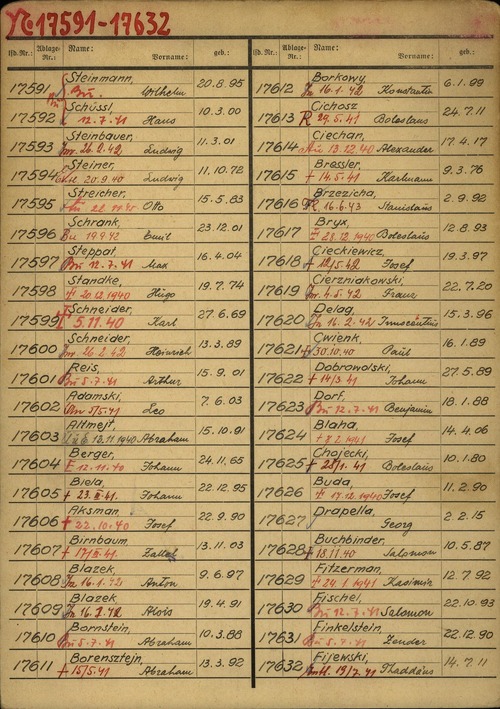 17591-17632
lfd. Nr.: Ablage-Nr.: Name: Vorname: geb.:
17591 Steinmann, Wilhelm 20.8.95
17592 Schüssl, 12.7.41 Hans 10.3.00
17593 Steinbauer, 26.2.42 Ludwig 11.3.01
17594 Steiner, 20.9.40 Ludwig 11.10.72
17595 Streicher, Otto 15.5.83
17596 Schrank, Emil 23.12.01
17597 Steppat Bu 12.7.41 Max 16.4.04
17598 Standke, 20.12.1940 Hugo 19.7.74
17599 Schneider, 5.11.40 Karl 27.6.69
17600 Schneider, 26.2.42 Heinrich 13.3.89
17601 Reis, Bu 5.7.41 Arthur 15.9.01
17602 Adamski, 5/5.41 Leo 7.6.03
17603 Altmejt, 13.11.1940 Abraham 15.10.91
17604 Berger, E 12.11.40 Johann 24.11.65
17605 Biela, + 23.II.41. Johann 22.12.95
17606 Aksman, + 22.10.40 Josef 22.9.90
17607 Birnbaum, 13.11.03
17608 Blazek, Anton 9.6.97
17609 Blazek, Alois 19.4.91
17610 Bornstein, Bu 5.7.41 Abraham 10.3.88
17611 Borensztejn, + 15/5.41 Abraham 13.3.92
lfd. Nr.: Ablage-Nr.: Name: Vorname: geb.:
17612 Borkowy, 16.1.42 Konstantin 6.1.99
17613 Cichosz R 29.5.41 Boleslaus 24.7.11
17614 Ciechan, 13.12.40 Alexander 17.4.17
17615 Brassler, + 14.5.41 Hartmann 9.3.76
17616 Brzezicha, 16.6.43 Stanislaus 2.9.92
17617 Bryx, 28.12.1940 Boleslaus 12.8.93
17618 Cieckiewicz, Josef 19.3.97
17619 Cierzniakowski, 4.5.42 Franz 22.7.20
17620 Delag, 16.2.42 15.3.96
17621 Cwienk, 30.10.40 Paul 16.1.89
17622 Dobrowolski, + 14/3.41 Johann 27.5.89
17623 Dorf, Bu 12.7.41 Benjamin 18.1.88
17624 Blaha, Josef 14.4.06
17625 Chojecki, + 28/1.41 Boleslaus 10.1.80
17626 Buda, 17.12.1940 Josef 11.2.90
17627 Drapella, Georg 2.2.15
17628 Buchbinder, + 18.11.40 Salomon 10.5.87
17629 Fitzerman, 24.1.1941 Kasimir 12.7.92
17630 Fischel, Bu 12.7.41 Salomon 22.10.93
17631 Finkelstein, Bu 5.7.41 Zender 22.12.90
17632 Fijewski, Entl. 19/7.41 Thaddäus 14.7.11